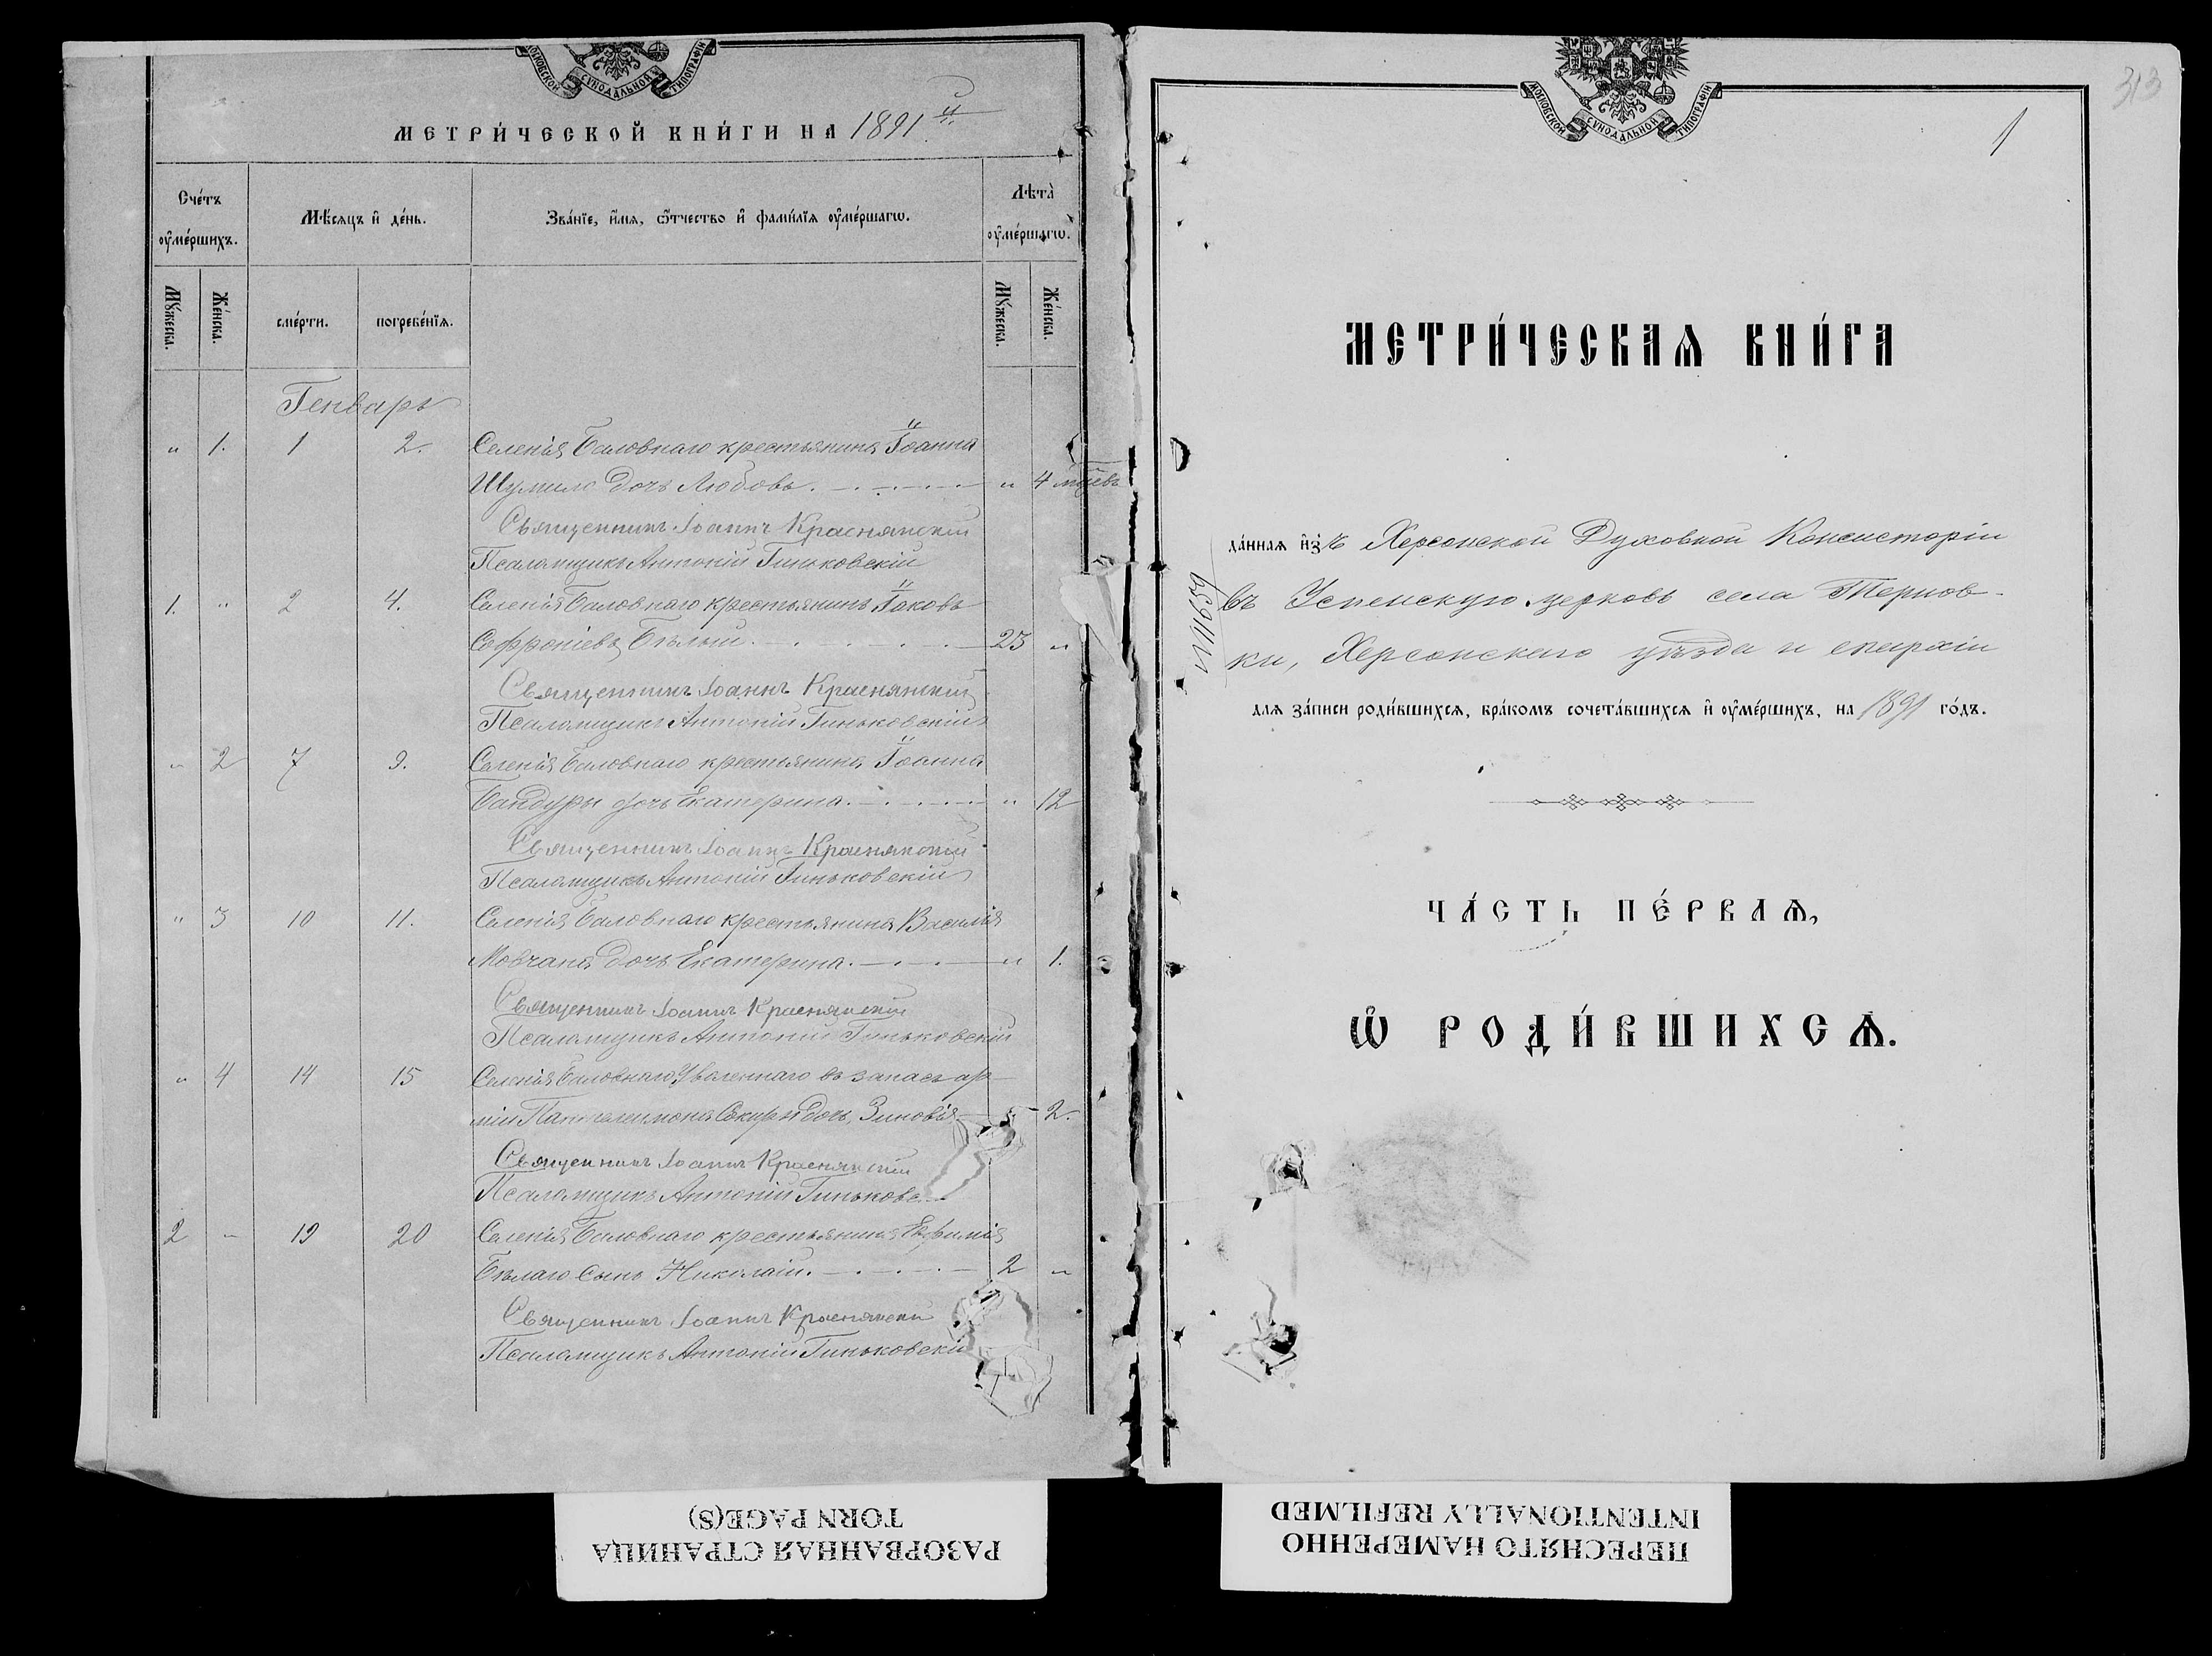 МОСКОВСКОЙ СѴНОДАЛЬНОЙ ТИПОГРАФІИ
МЕТРИ́ЧЕСКОЙ КНИ́ГИ НА 1891 й.
Сче́тъ ѹ҆ме́ршихъ.
Мѣ́сяцъ и҆ де́нь.
Зва́нїе, и҆́мѧ, ѻ҆́тчество и҆ фами́лїѧ ѹ҆ме́ршагѡ.
Лѣта̀ ѹ҆ме́ршагѡ.
Мꙋ́жеска.
Же́нска.
сме́рти.
погребе́нїѧ.
Мꙋ́жеска.
Же́нска.
Генварь
" 1. 1 2. Селенія Баловнаго крестьянина Іоанна
Шумило дочь Любовь. " 4 мцевъ
Священникъ Іоаннъ Краснянскій
Псаломщикъ Антоній Гиньковскій
1. " 2 4. Селенія Баловнаго крестьянинъ Іаковъ
Софроніевъ Бѣлый. 23 "
Священникъ Іоаннъ Краснянскій
Псаломщикъ Антоній Гиньковскій
" 2 7 9. Селенія Баловнаго крестьянина Іоанна
Бандуры дочь Екатерина. " 12
Священникъ Іоаннъ Краснянскій
Псаломщикъ Антоній Гиньковскій
" 3 10 11. Селенія Баловнаго крестьянина Василія
Мовчана дочь Екатерина. " 1.
Священникъ Іоаннъ Краснянскій
Псаломщикъ Антоній Гиньковскій
" 4 14 15 Селенія Баловнаго уволеннаго въ запасъ ар-
міи Пантелеимона Сокиры дочь Зиновія 2.
Священникъ Іоаннъ Краснянскій
Псаломщикъ Антоній Гиньковс
2 " 19 20 Селенія Баловнаго крестьянина Евфимія
Бѣлаго сынъ Николай. 2 "
Священникъ Іоаннъ Краснянскій
Псаломщикъ Антоній Гиньковскі
РАЗОРВАННАЯ СТРАНИЦА
TORN PAGE(S)
МОСКОВСКОЙ СѴНОДАЛЬНОЙ ТИПОГРАФІИ
313
1
МЕТРИ́ЧЕСКАѦ КНИ́ГА
да́ннаѧ и҆з̾ъ Херсонской Духовной Консисторіи
въ Успенскую церковь села Тернов-
ки, Херсонскаго уѣзда и епархіи
длѧ за́писи роди́вшихсѧ, бра́комъ сочета́вшихсѧ и҆ ѹ҆ме́ршихъ, на 1891 го́дъ.
ЧА́СТЬ ПЕ́РВАѦ,
Ѽ РОДИ́ВШИХСѦ.
ПЕРЕСНЯТО НАМЕРЕННО
INTENTIONALLY REFILMED